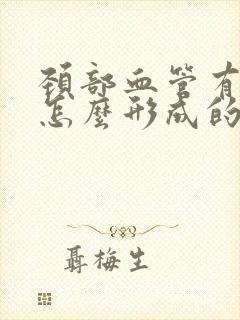 頸部血管有
怎麼形成的
聶梅生